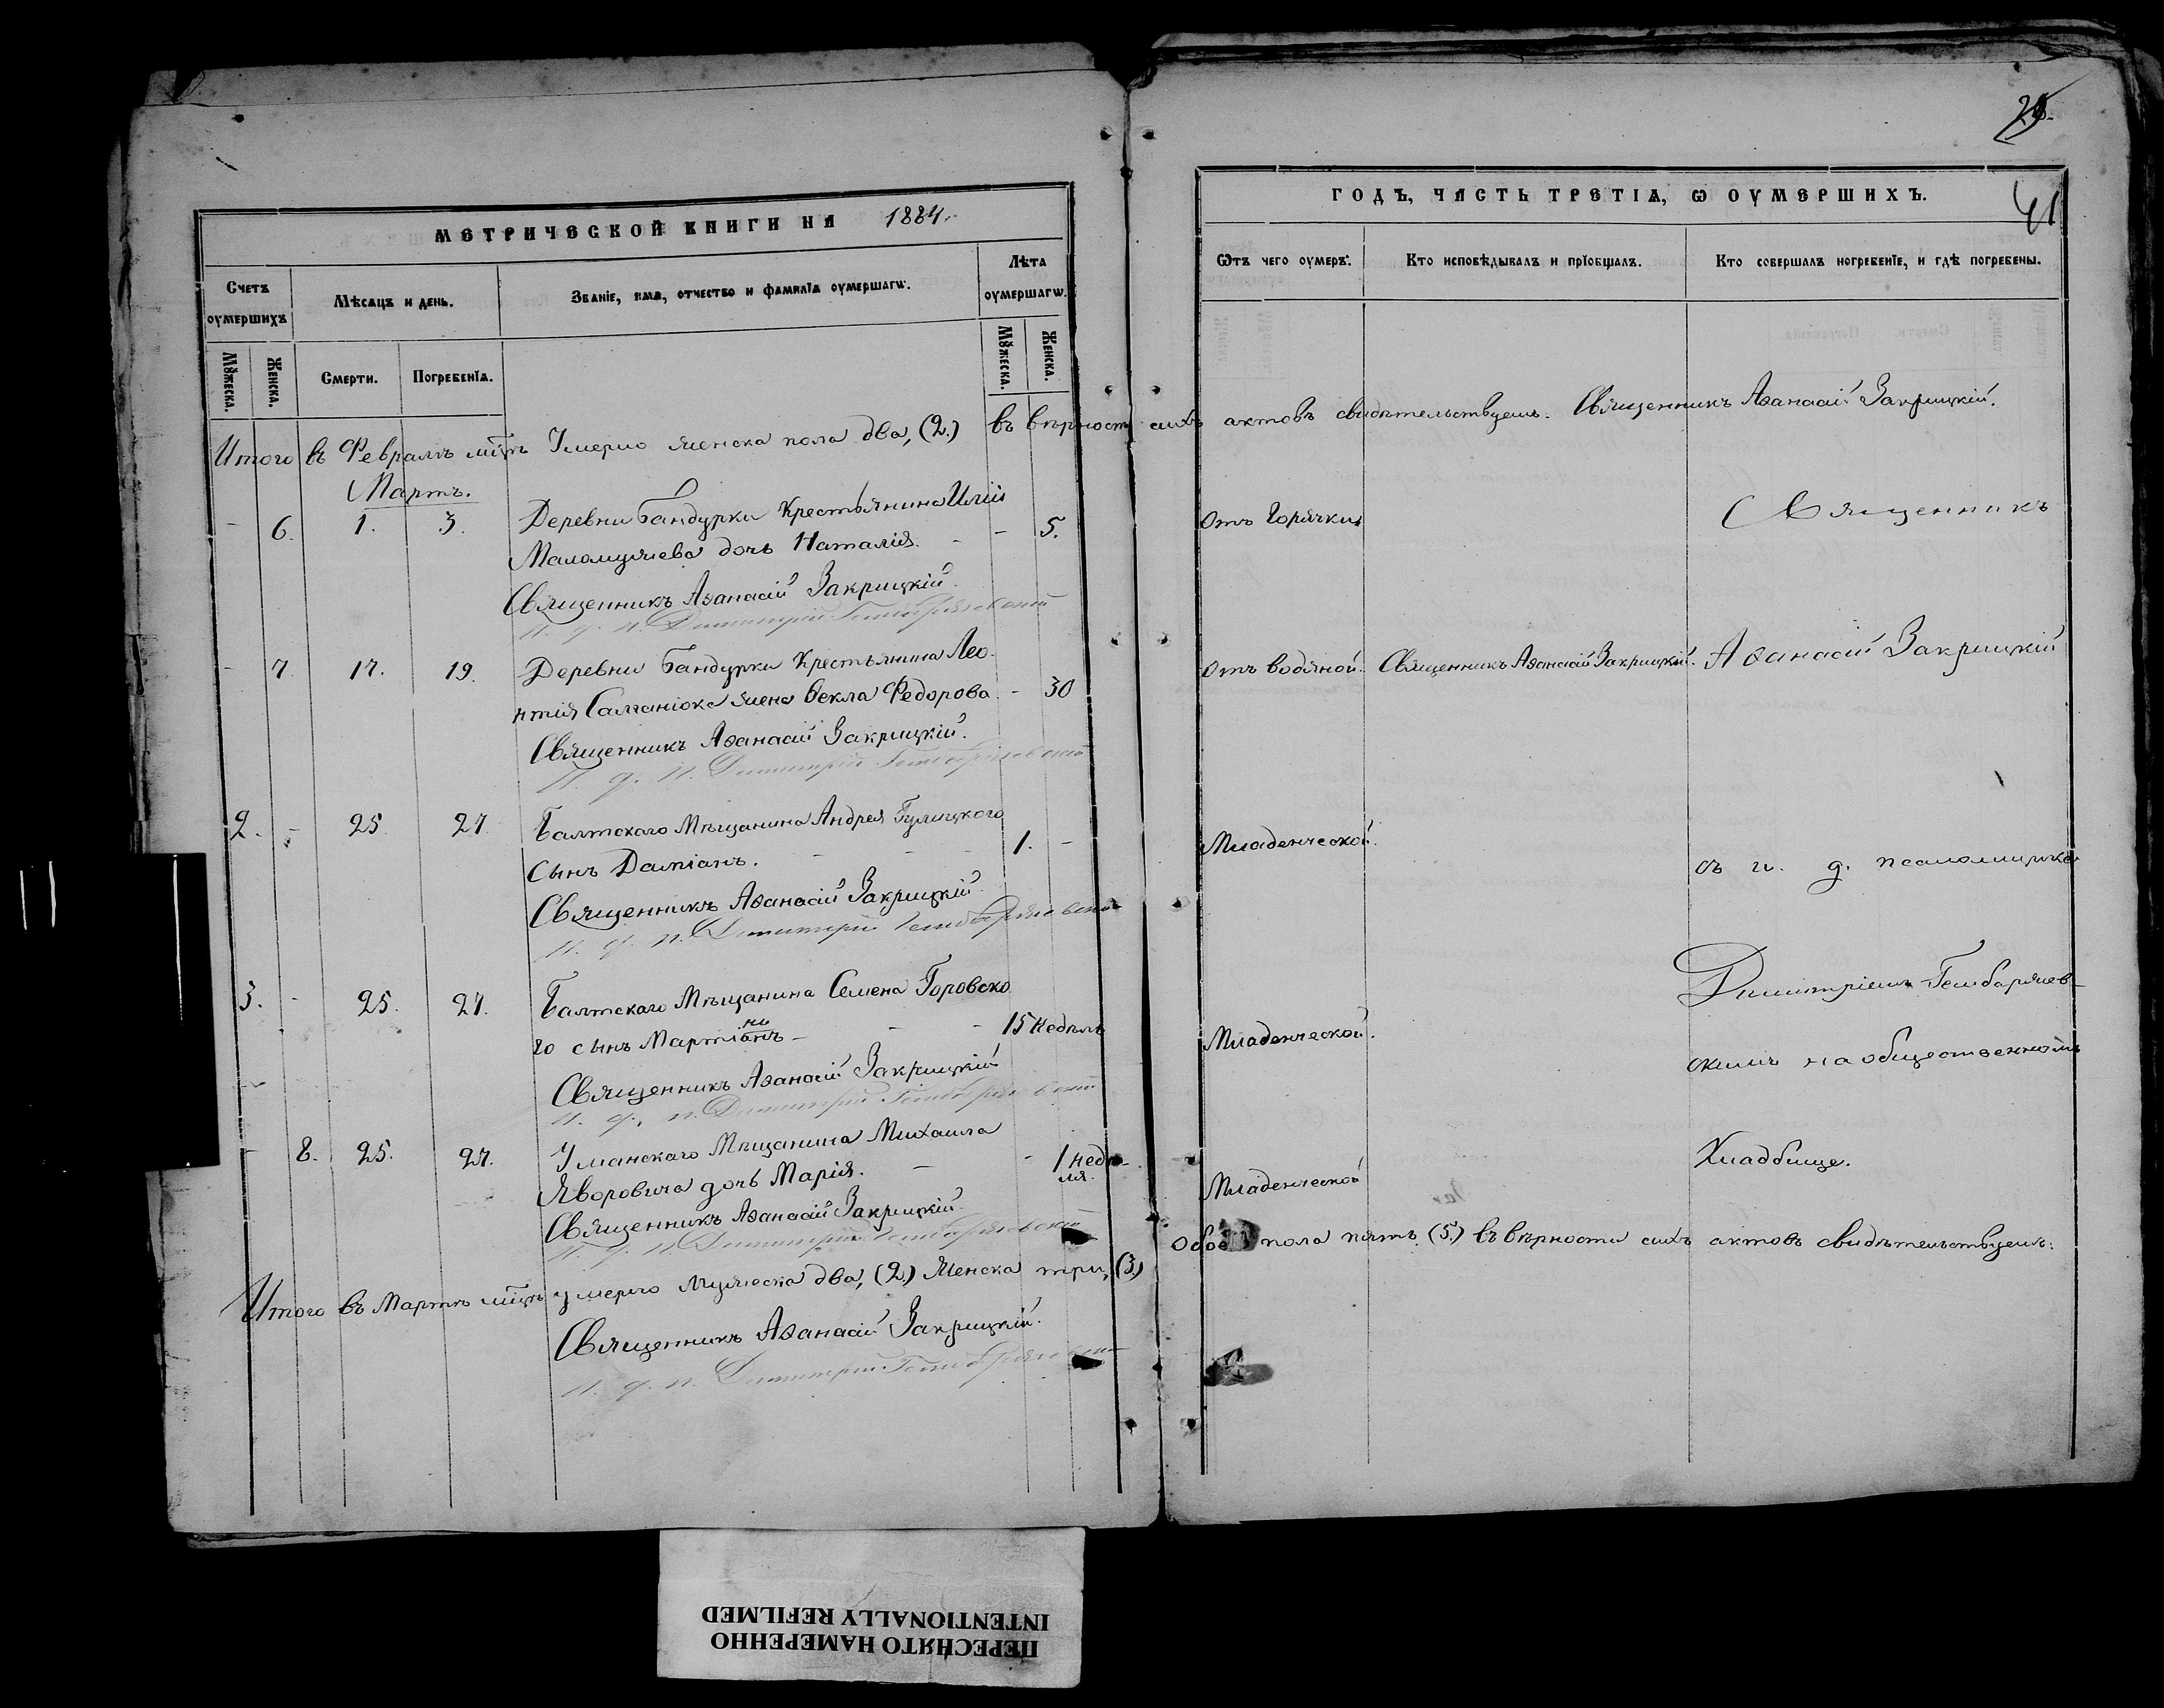 МЕТРИЧЕСКОЙ КНИГИ НА 1884.
Счетъ оумершихъ
Мѣсяцъ и день.
Званіе, имя, отчество и фамилія оумершагѡ.
Лѣта оумершагѡ.
Мꙋжеска.
Женска.
Смерти.
Погребенїѧ.
Мꙋжеска.
Женска.
Итого въ Февралѣ мцѣ Умерло женска пола два, (2.) въ вѣрности
Мартъ.
- 6. 1. 3. Деревни Бандурки Крестьянина Иліи
Маломужева дочь Наталія. - - 5.
Священникъ Аѳанасій Закрицкій.
И. д. п. Димитрій
- 7. 17. 19. Деревни Бандурки Крестьянина Лео-
нтія жена Ѳекла Федорова. - 30
Священникъ Аѳанасій Закрицкій.
И. д. п. Димитрій
2. - 25. 27. Балтскаго Мѣщанина Андрея Гулицкого
сынъ Даміанъ. - - - 1. -
Священникъ Аѳанасій Закрицкій.
И. д. п. Димитрій
3. - 25. 27. Балтскаго Мѣщанина Семена Горовско
го сынъ Мартіанъ - - - 15 недѣль
Священникъ Аѳанасій Закрицкій
И. д. п. Димитрій
- 8. 25. 27. Уманскаго Мѣщанина Михаила
Яворовича дочь Марія. - - 1 недѣ-
ля.
Священникъ Аѳанасій Закрицкій.
И. д. п. Димитрій
Итого въ Мартѣ мцѣ умерло мужеска два, (2.) женска три, (3.)
Священникъ Аѳанасій Закрицкій.
И. д. п. Димитрій
29.
41
ГОДЪ, ЧАСТЬ ТРЕТІѦ, Ѡ ОУМЕРШИХЪ.
Ѿтъ чего оумеръ.
Кто исповѣдывалъ и прїобщалъ.
Кто совершалъ погребенїе, и гдѣ погребены.
сихъ актовъ свидѣтельствуемъ. Священникъ Аѳанасій Закрицкій.
Отъ Горячки Священникъ
Отъ водяной. Священникъ Аѳанасій Закрицкій. Аѳанасій Закрицкій
Младенческой.
съ и. д. псаломщика
Димитріемъ Гембаржев-
Младенческой.
скимъ на общественномъ
Кладбище.
Младенческой
Обоего пола пять (5.) въ вѣрности сихъ актовъ свидѣтельствуемъ:
ПЕРЕСНЯТО НАМЕРЕННО
INTENTIONALLY REFILMED